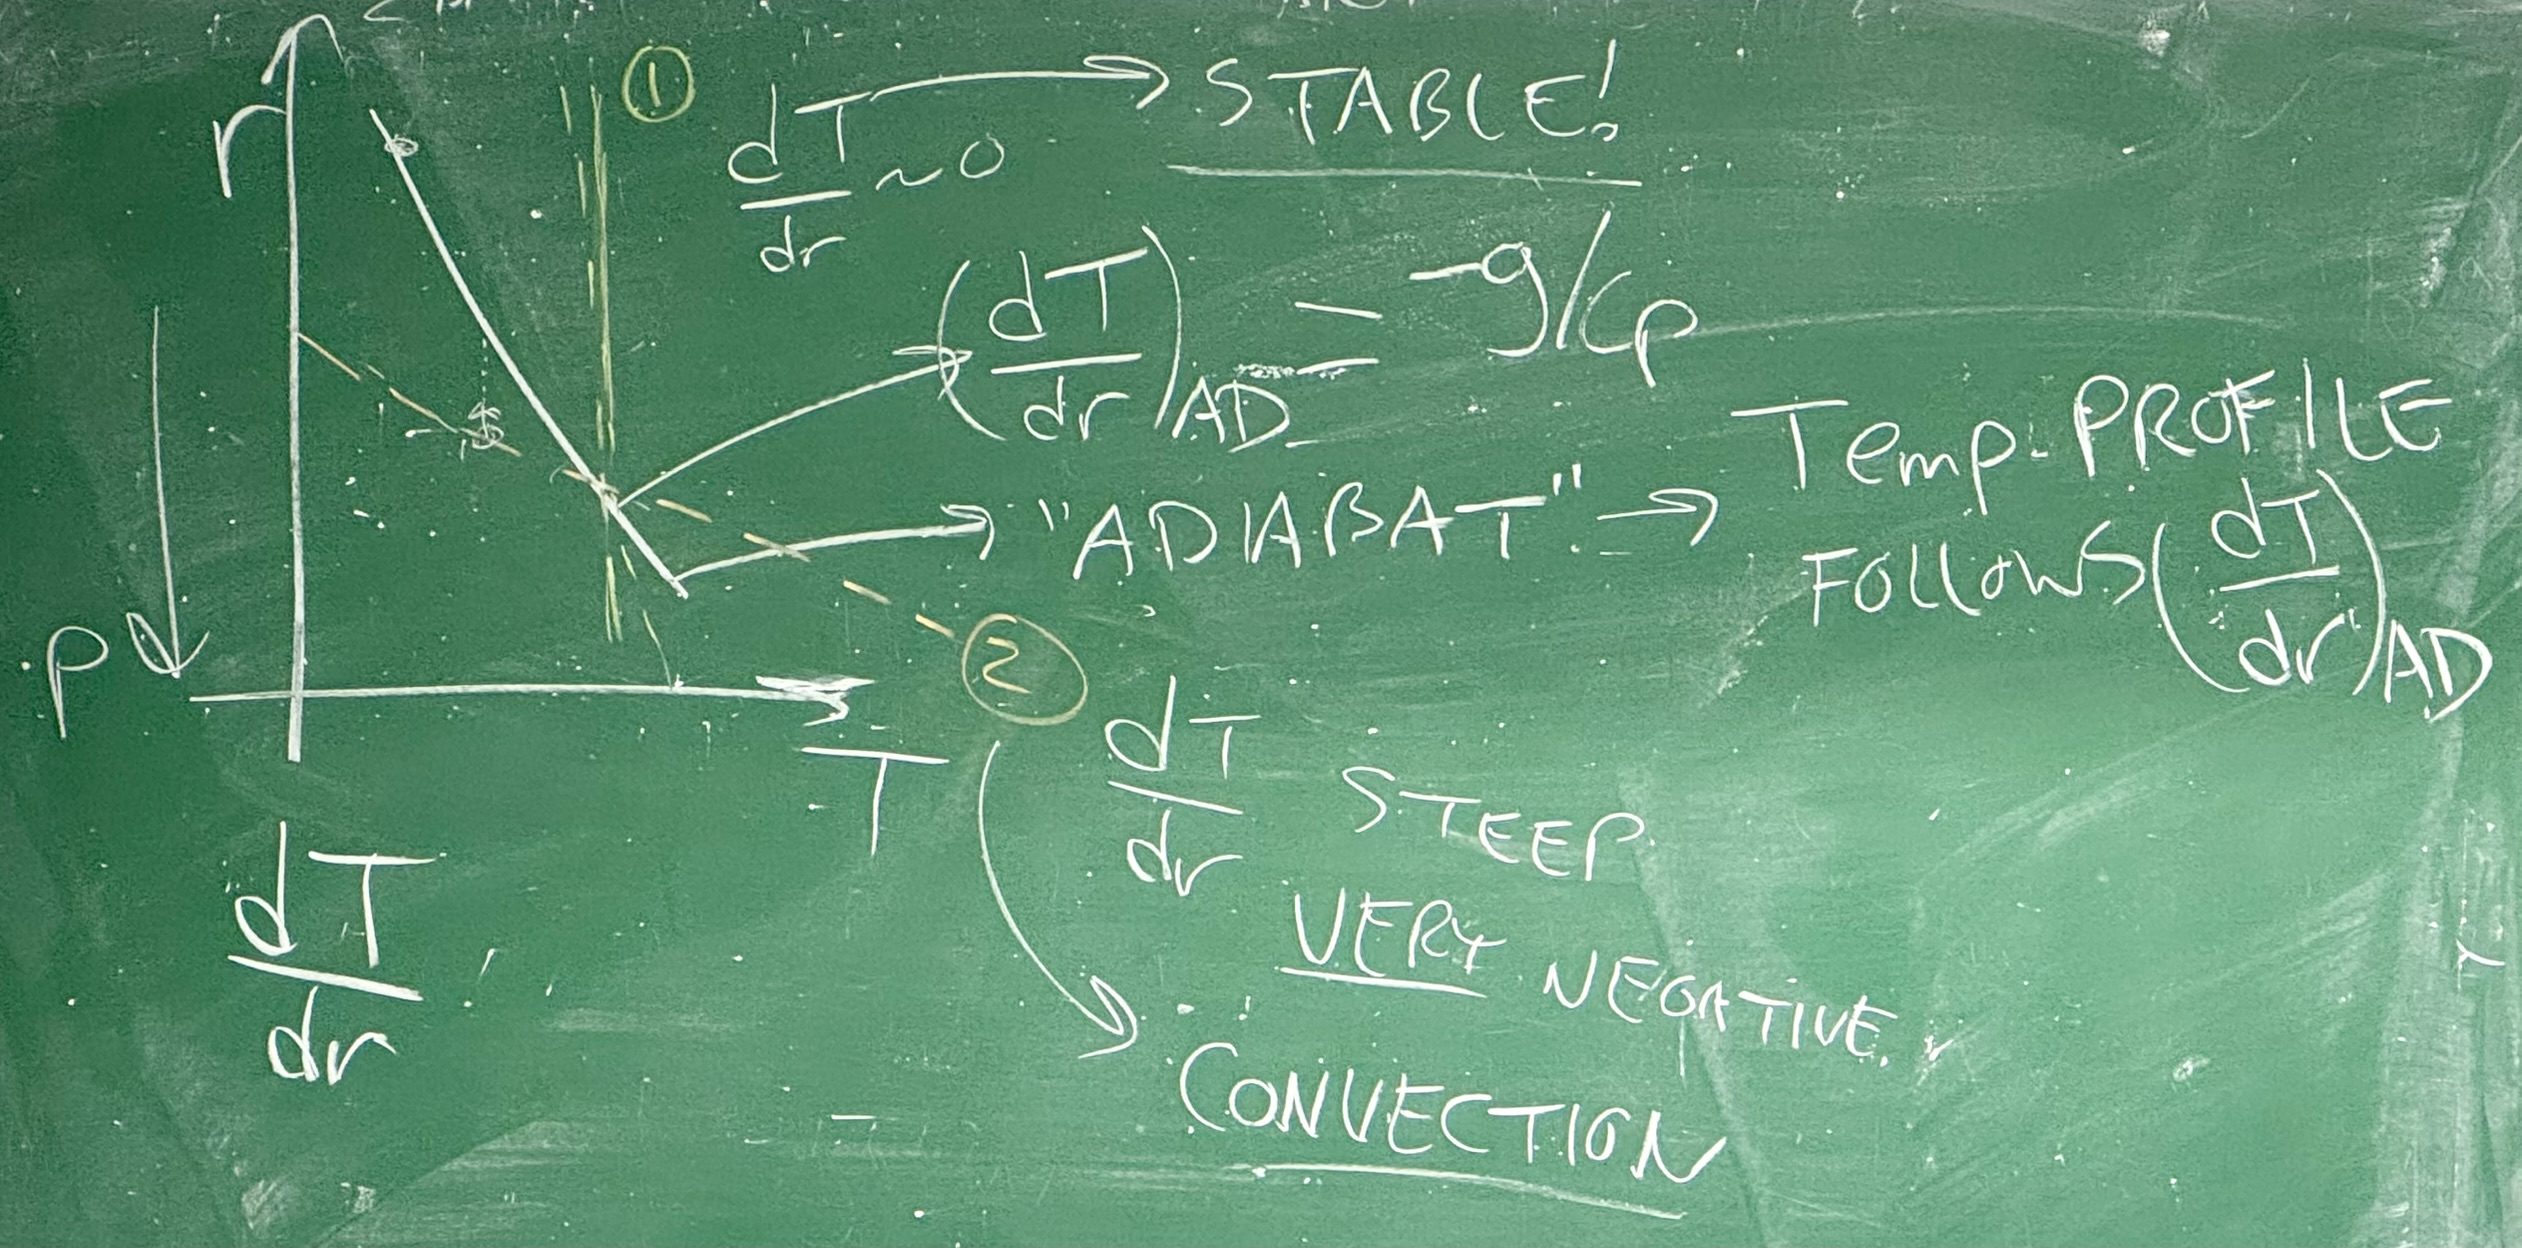 r
①
dT/dr ~0 → STABLE!
(dT/dr)AD = -g/Cp
"ADIABAT" → Temp. PROFILE
FOLLOWS (dT/dr)AD
P
T
②
dT/dr STEEP
VERY NEGATIVE.
CONVECTION
dT/dr